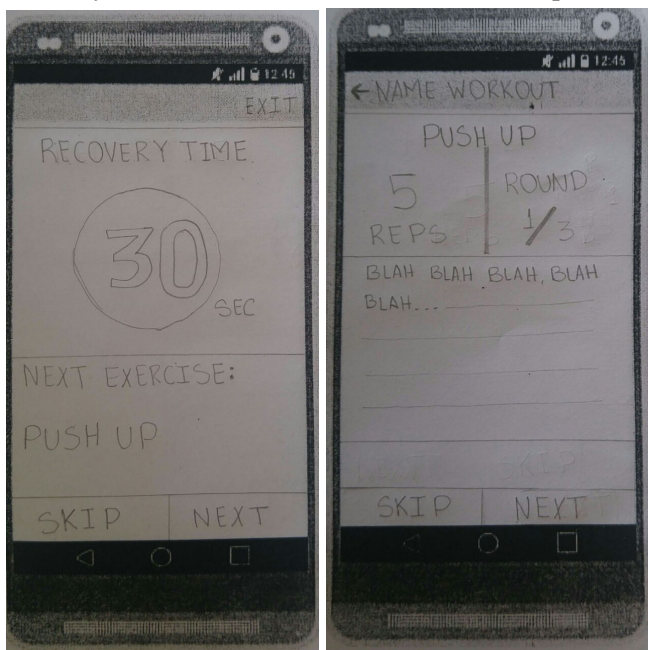 12:45
EXIT
RECOVERY TIME
30
SEC
NEXT EXERCISE:
PUSH UP
SKIP NEXT
12:45
← NAME WORKOUT
PUSH UP
5
REPS
ROUND
1/3
BLAH BLAH BLAH, BLAH
BLAH...
SKIP
SKIP NEXT